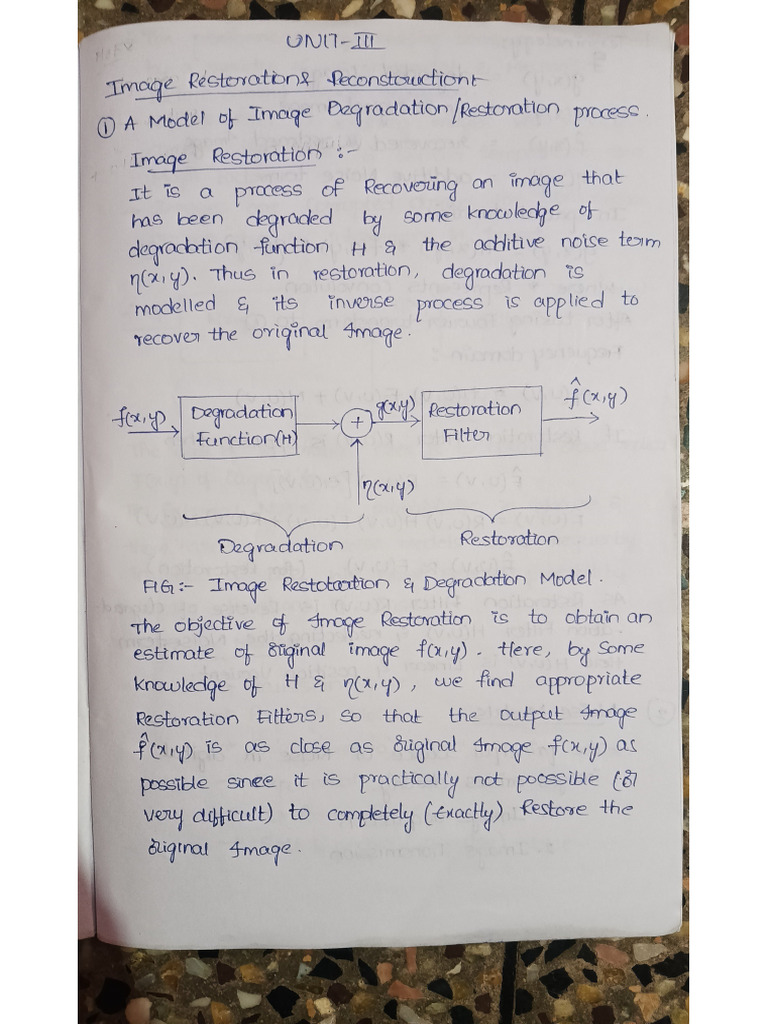 UNIT-III
Image Restoration & Reconstruction:-
① A Model of Image Degradation/Restoration process.
Image Restoration :-
It is a process of Recovering an image that
has been degraded by some knowledge of
degradation function H & the additive noise term
η(x,y). Thus in restoration, degradation is
modelled & its inverse process is applied to
recover the original Image.
f(x,y)
Degradation
Function(H)
+
g(x,y)
Restoration
Filter
f̂(x,y)
η(x,y)
Degradation
Restoration
FIG:- Image Restotaration & Degradation Model.
The objective of Image Restoration is to obtain an
estimate of original image f(x,y). Here, by some
knowledge of H & η(x,y), we find appropriate
Restoration Filters, so that the output Image
f̂(x,y) is as close as original Image f(x,y) as
possible since it is practically not poossible (or
very difficult) to completely (Exactly) Restore the
original Image.